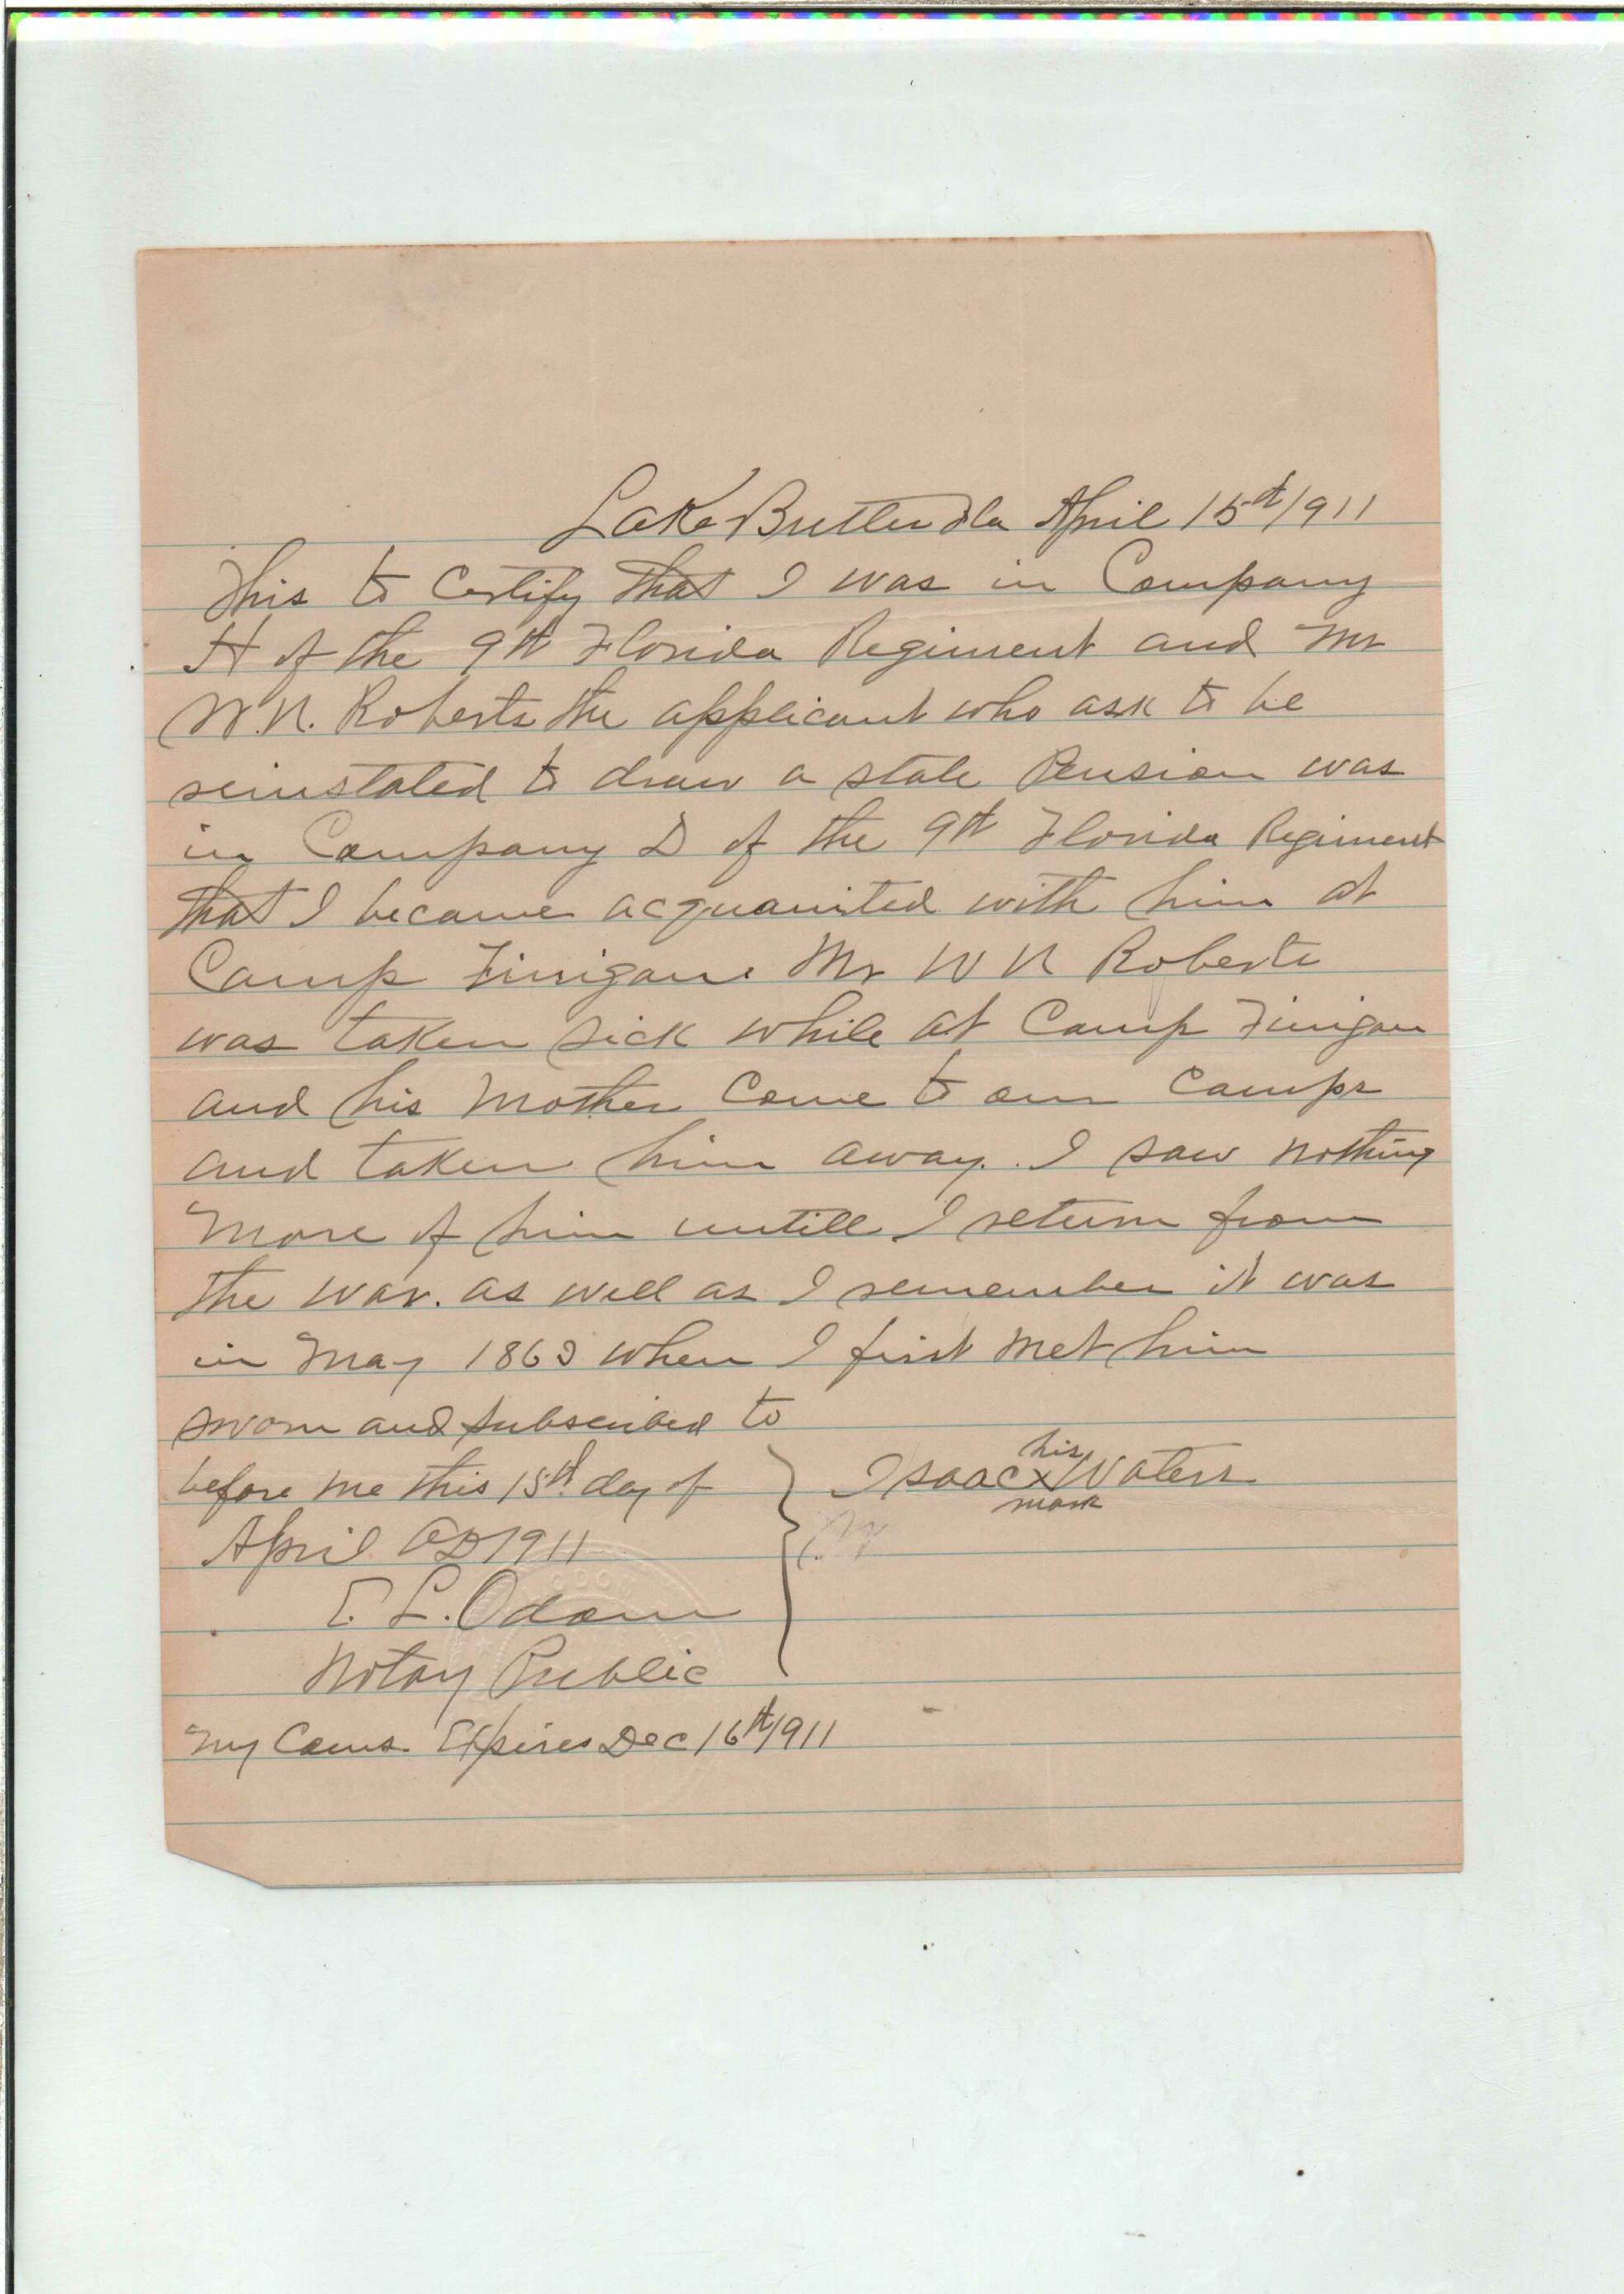 Lake Butler Fla April 15th/1911
This to Certify that I was in Company
H of the 9th Florida Regiment and Mr
W.N. Roberts the applicant who ask to be
reinstated to draw a state Pension was
in Company D of the 9th Florida Regiment
that I became acquanited with him at
Camp Finigan. Mr W N Roberts
was taken sick while at Camp Finigan
and his Mother Come to our Camps
and taken him away. I saw nothing
more of him untill I return from
the war. as well as I remember it was
in May 1863 when I first met him
Sworn and subscribed to
before me this 15th day of
April AD 1911
his
Isaac x Waters
mark
E. L. Odom
Notary Public
My Coms. Expires Dec 16th/1911